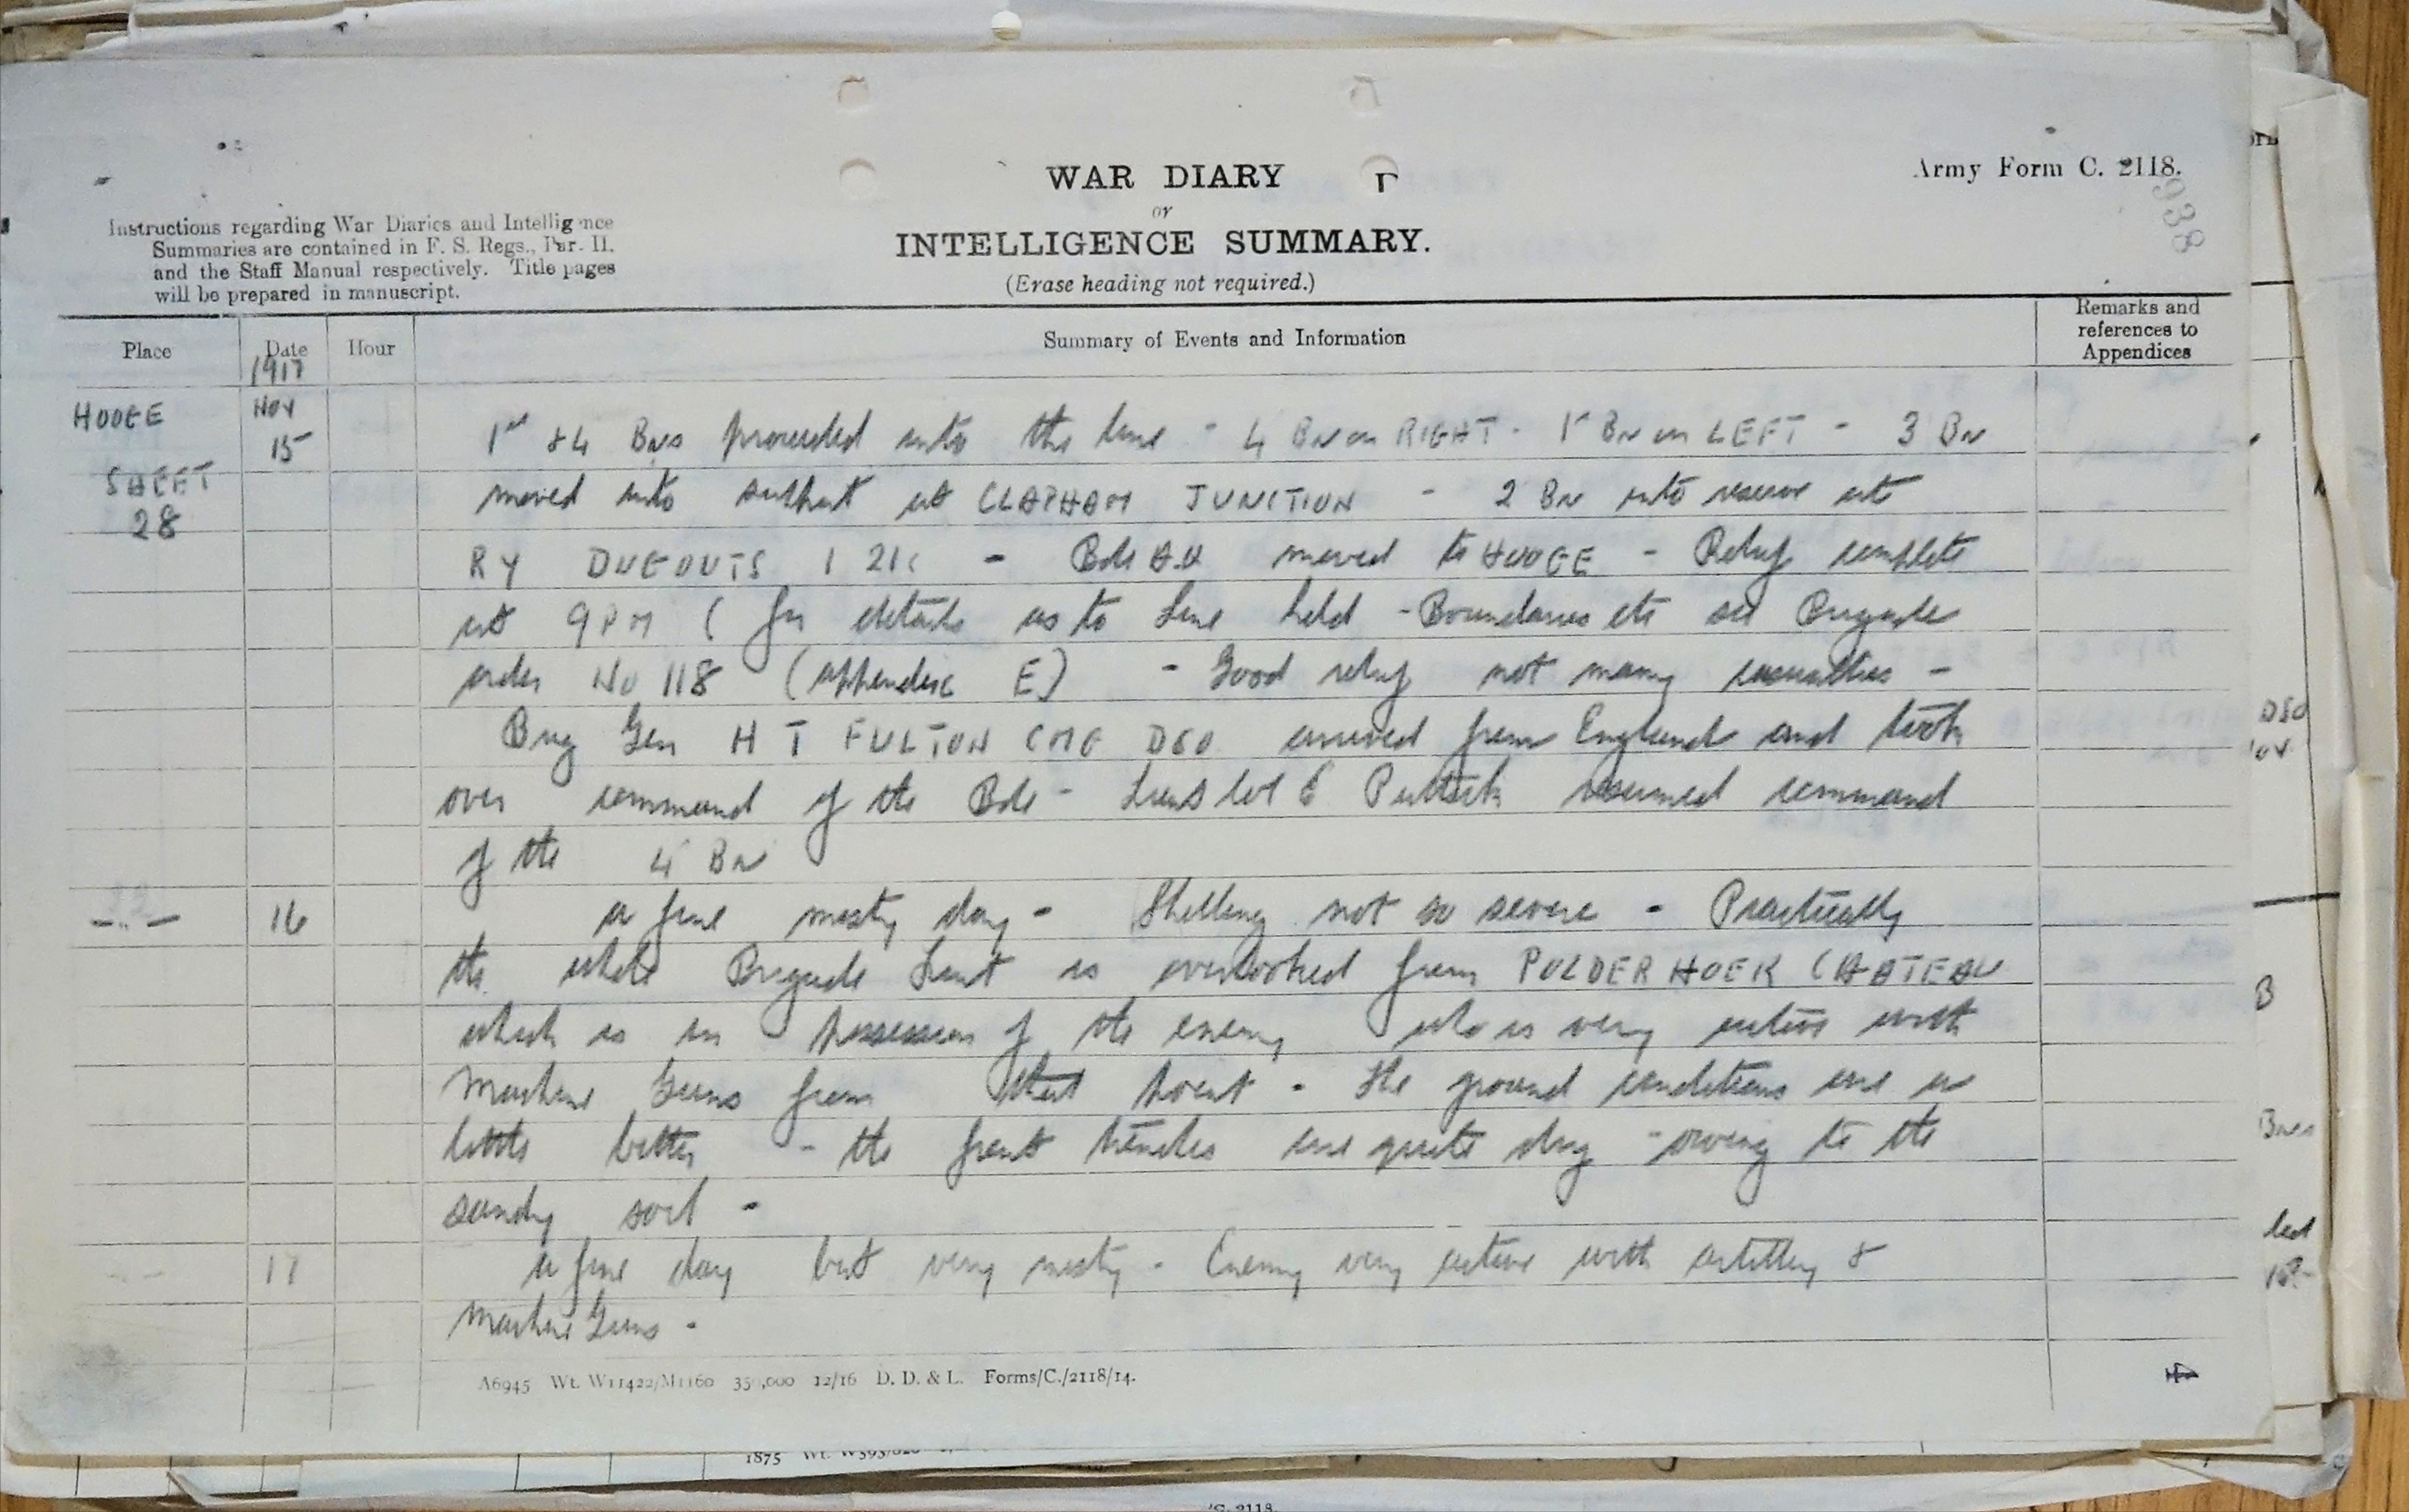 WAR DIARY
or
INTELLIGENCE SUMMARY.
(Erase heading not required.)
Army Form C. 2118.
938
Instructions regarding War Diaries and Intelligence
Summaries are contained in F. S. Regs., Par. II.
and the Staff Manual respectively. Title pages
will be prepared in manuscript.
Place Date Hour Summary of Events and Information Remarks and references to Appendices
1917
HOOGE Nov 15 1st & 4 Bns proceeded into the line - 4 Bn on RIGHT - 1st Bn on LEFT - 3 Bn
SHEET 28 moved into support at CLAPHAM JUNCTION - 2 Bn into reserve at
RY DUGOUTS I 21c - Bde H.Q moved to HOOGE - Relief complete
at 9 PM ( for details as to Line held - Boundaries etc see Brigade
order No 118 (appendix E) - Good relief not many casualties -
Brig Gen H T FULTON CMG DSO arrived from England and took
over command of the Bde - Lieut Col E Puttick resumed command
of the 4 Bn
-"- 16 a fine misty day - Shelling not so severe - Practically
the whole Brigade front is overlooked from POLDERHOEK CHATEAU
which is in possession of the enemy who is very active with
Machine Guns from that point - The ground conditions are a
little better - the front trenches are quite dry - owing to the
sandy soil -
17 a fine day but very misty - Enemy very active with artillery &
Machine Guns -
A6945 Wt. W11422/M1160 35,000 12/16 D. D. & L. Forms/C./2118/14.
4
DSO
B
Bns
1875
C. 2118.